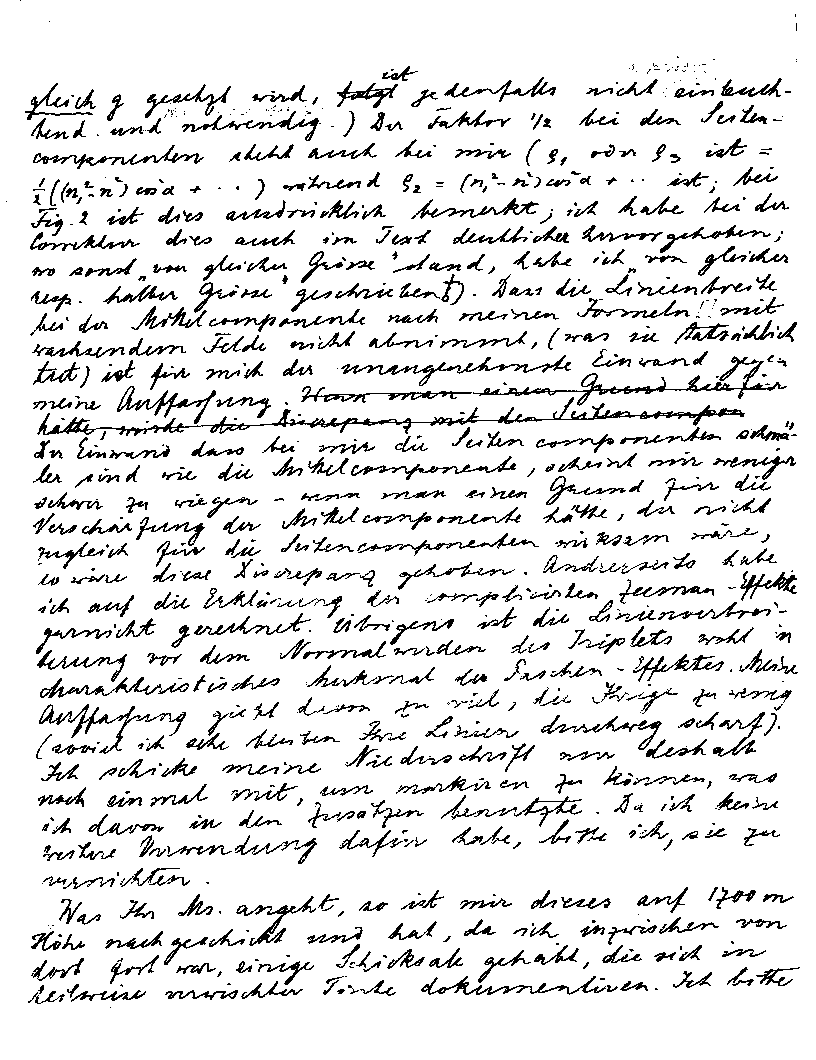 ist
gleich g gesetzt wird, folgt jedenfalls nicht einleuch-
tend und notwendig.) Der Faktor 1/2 bei den Seiten-
componenten steht auch bei mir (ϱ₁ oder ϱ₃ ist =
½((n₁²-n²) cos²α + ··) während ϱ₂ = (n₁²-n²) cos²α + ·· ist; bei
Fig. 2 ist dies ausdrücklich bemerkt; ich habe bei der
Correktur dies auch im Text deutlicher hervorgehoben;
wo sonst „von gleicher Grösse" stand, habe ich „von gleicher
resp. halber Grösse" geschrieben). Dass die Linienbreite
bei der Mittelcomponente nach meinen Formeln mit
wachsendem Felde nicht abnimmt, (was sie tatsächlich
tut) ist für mich der unangenehmste Einwand gegen
meine Auffassung. Wenn man einen Grund hierfür
hätte, würde die Discrepanz mit den Seitencompon
Der Einwand dass bei mir die Seitencomponenten schmä-
ler sind wie die Mittelcomponente, scheint mir weniger
schwer zu wiegen - wenn man einen Grund für die
Verschärfung der Mittelcomponente hätte, der nicht
zugleich für die Seitencomponenten wirksam wäre,
so wäre diese Discrepanz gehoben. Andrerseits habe
ich auf die Erklärung der complicirten Zeeman-Effekte
garnicht gerechnet. Übrigens ist die Linienverbrei-
terung vor dem Normalwerden des Triplets wohl ein
charakteristisches Merkmal des Paschen-Effektes. Meine
Auffassung giebt davon zu viel, die Ihrige zu wenig
(soviel ich sehe bleiben Ihre Linien durchweg scharf).
Ich schicke meine Niederschrift nur deshalb
noch einmal mit, um markiren zu können, was
ich davon in den Zusätzen benutzte. Da ich keine
weitere Verwendung dafür habe, bitte ich, sie zu
vernichten.
Was Ihr Ms. angeht, so ist mir dieses auf 1700 m
Höhe nachgeschickt und hat, da ich inzwischen von
dort fort war, einige Schicksale gehabt, die sich in
teilweise verwischter Tinte dokumentiren. Ich bitte